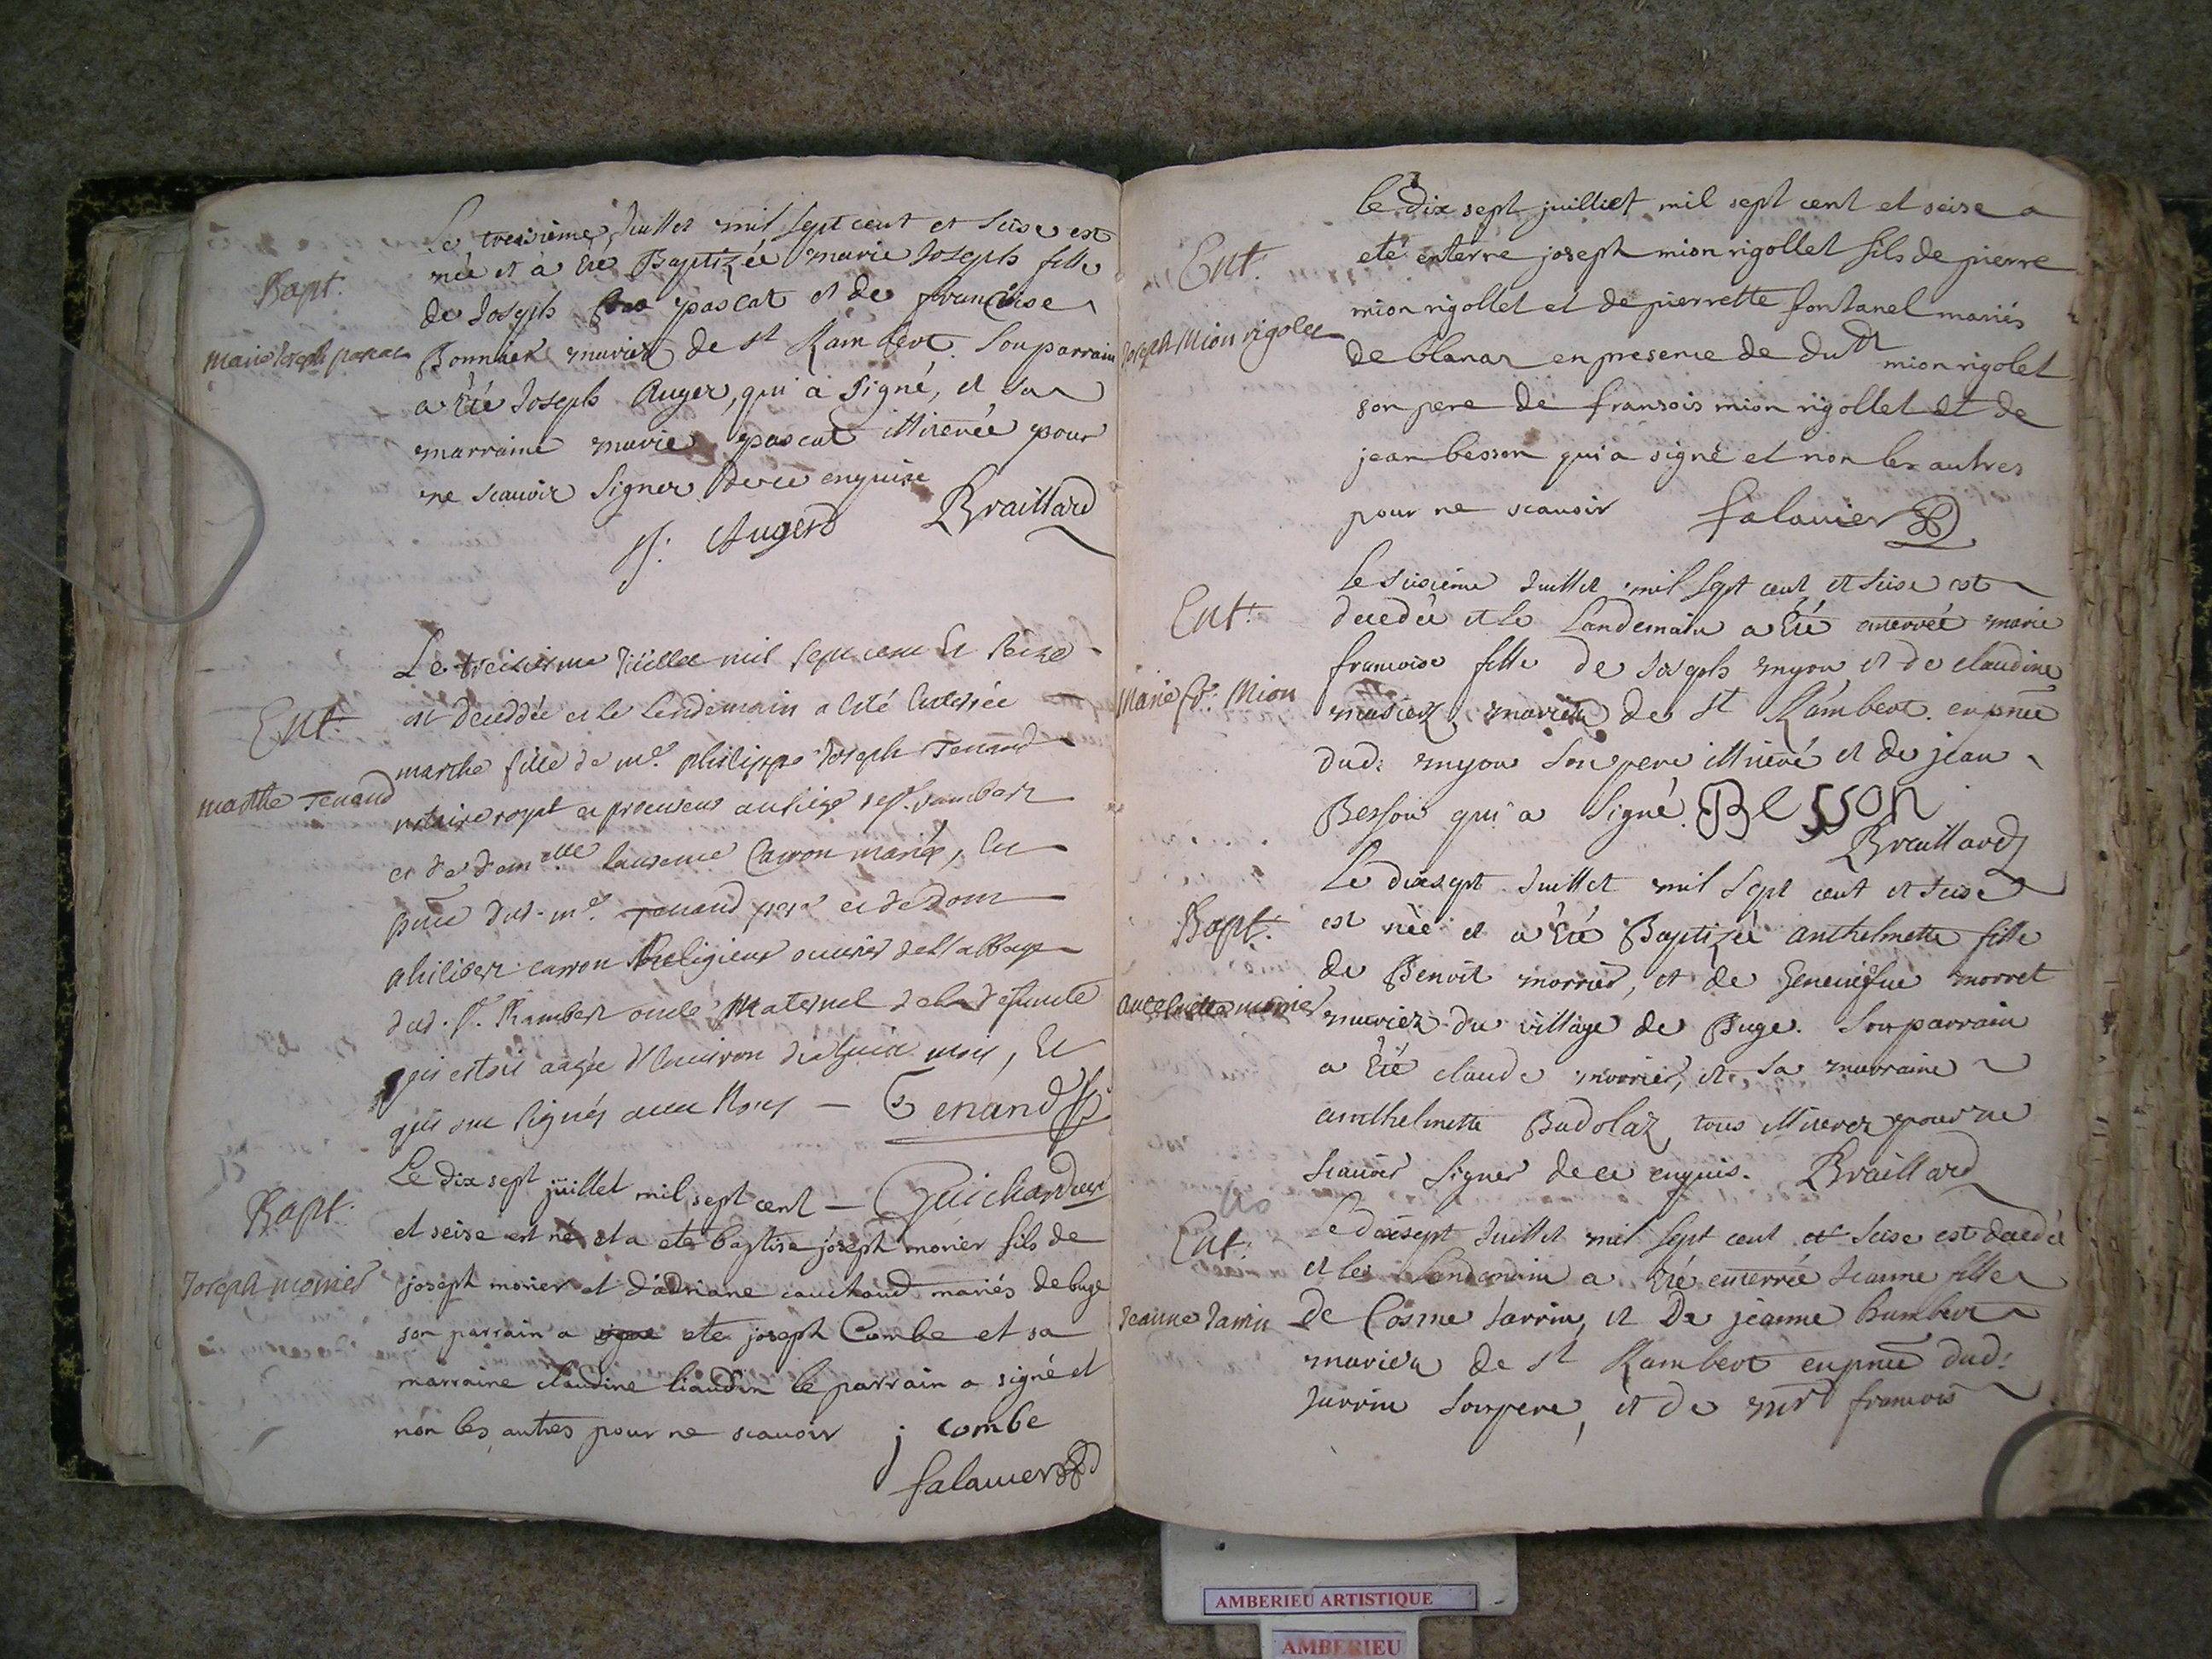 Le treisième Juillet mil sept cent et seise est
Bapt.
née et à été Baptizée marie Joseph fille
de Joseph pascat et de francoise
marie Joseph pascat
Bonnier mariez de st Rambert. Son parrain
a été Joseph Auger, qui a signé, et sa
marraine marie pascat illiterée pour
ne scauoir signer de ce enquise
J. Auger Braillard
Le treisiesme Juillet mil sept cent et seize
Ent.
est deceddée et le lendemain a esté enterrée
marthe fille de me. philippe Joseph Tenand
marthe Tenand
notaire royal et procureur au siege de st. rambert
et de demelle laurence Carron mariés, en
pnce dud. me. Tenand pere et de dom
philibert carron Religieux ouurier de l'abbaye
dud. St. Rambert oncle maternel de la defuncte
qui estoit aagée d'enuiron dixhuict mois, et
qui ont signés auec nous — Tenand
Le dix sept juillet mil sept cent — Guichard curé
Bapt.
et seise est né et a eté baptisé joseph morier fils de
Joseph morier
joseph morier et d'adriane cauchoud mariés de buge
son parrain a eté joseph Combe et sa
marraine claudine liaudin le parrain a signé et
non les autres pour ne scauoir j combe
falauier
le dix sept juilliet mil sept cent et seise a
Ent.
eté enterré joseph mion rigollet fils de pierre
mion rigollet et de pierrette fontanel mariés
Joseph Mion rigolet
de blanaz en presence de dudt mion rigolet
son pere de fransois mion rigollet et de
jean besson qui a signé et non les autres
pour ne scauoir falauier
Le seisieme Juillet mil sept cent et seise est
Ent.
decedée et le Landemain a été enterrée marie
francoise fille de Joseph myon et de claudine
Marie fse. Mion
mariez de st Rambert. en pnce
dud: myon son pere illiteré et de jean
Besson qui a signé. BeSSon
Braillard
Le dixsept Juillet mil sept cent et seise
Bapt.
est née et a été Baptizée anthelmette fille
de Benoit morrier, et de Geneuiefue morret
antelmette morrier
mariez du village de Buge. Son parrain
a été claude morrier, et sa marraine
anthelmette Budolaz, tous illiterez pour ne
scauoir signer de ce enquis. Braillard
Le dixsept Juillet mil sept cent et seise est decedée
Ent.
et le Landemain a été enterrée Jeanne fille
Jeanne Jarrin
de Cosme Jarrin, et De jeanne humbert
mariez de st Rambert en pnce dud:
Jarrin son pere, et de mr francois
AMBERIEU ARTISTIQUE
AMBERIEU